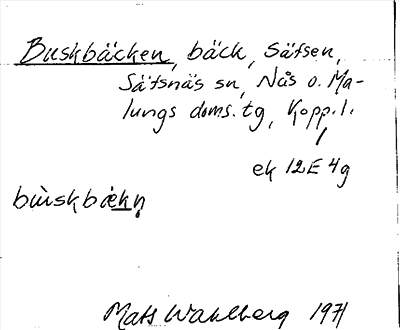 Buskbäcken, bäck, Säfsen,
Säfsnäs sn, Nås o. Ma-
lungs doms. tg, Kopp. l.
ek 12E 4g
Mats Wahlberg 1971